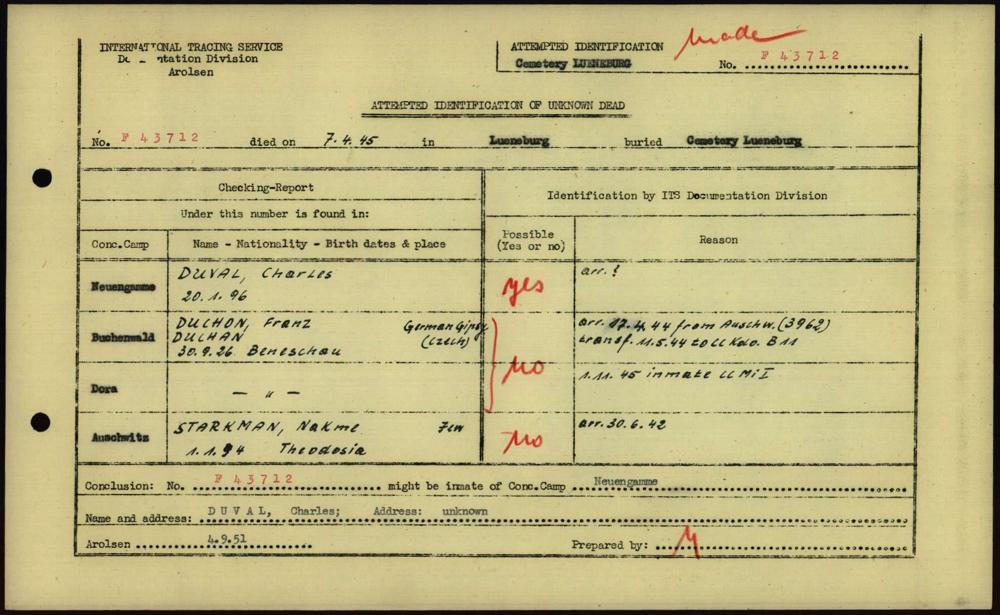 INTERNATIONAL TRACING SERVICE
Documentation Division
Arolsen
ATTEMPTED IDENTIFICATION
Cemetery LUENEBURG
made
No. F 43712
ATTEMPTED IDENTIFICATION OF UNKNOWN DEAD
No. F 43712 died on 7.4.45 in Lueneburg buried Cemetery Lueneburg
Checking-Report
Identification by ITS Documentation Division
Under this number is found in:
Conc.Camp
Name - Nationality - Birth dates & place
Possible
(Yes or no)
Reason
Neuengamme
DUVAL, Charles
20.1.96
yes
arr. ?
Buchenwald
DUCHON, Franz German Gipsy
DUCHAN (Czech)
30.9.26 Beneschau
no
arr. 17.4.44 from Auschw. (3962)
transf. 11.5.44 to Kdo. B 11
Dora
— " —
1.11.45 inmate
Auschwitz
STARKMAN, Nakme Jew
1.1.94 Theodosia
no
arr. 30.6.42
Conclusion: No. F 43712 might be inmate of Conc.Camp Neuengamme
Name and address: DUVAL, Charles; Address: unknown
Arolsen 4.9.51
Prepared by: